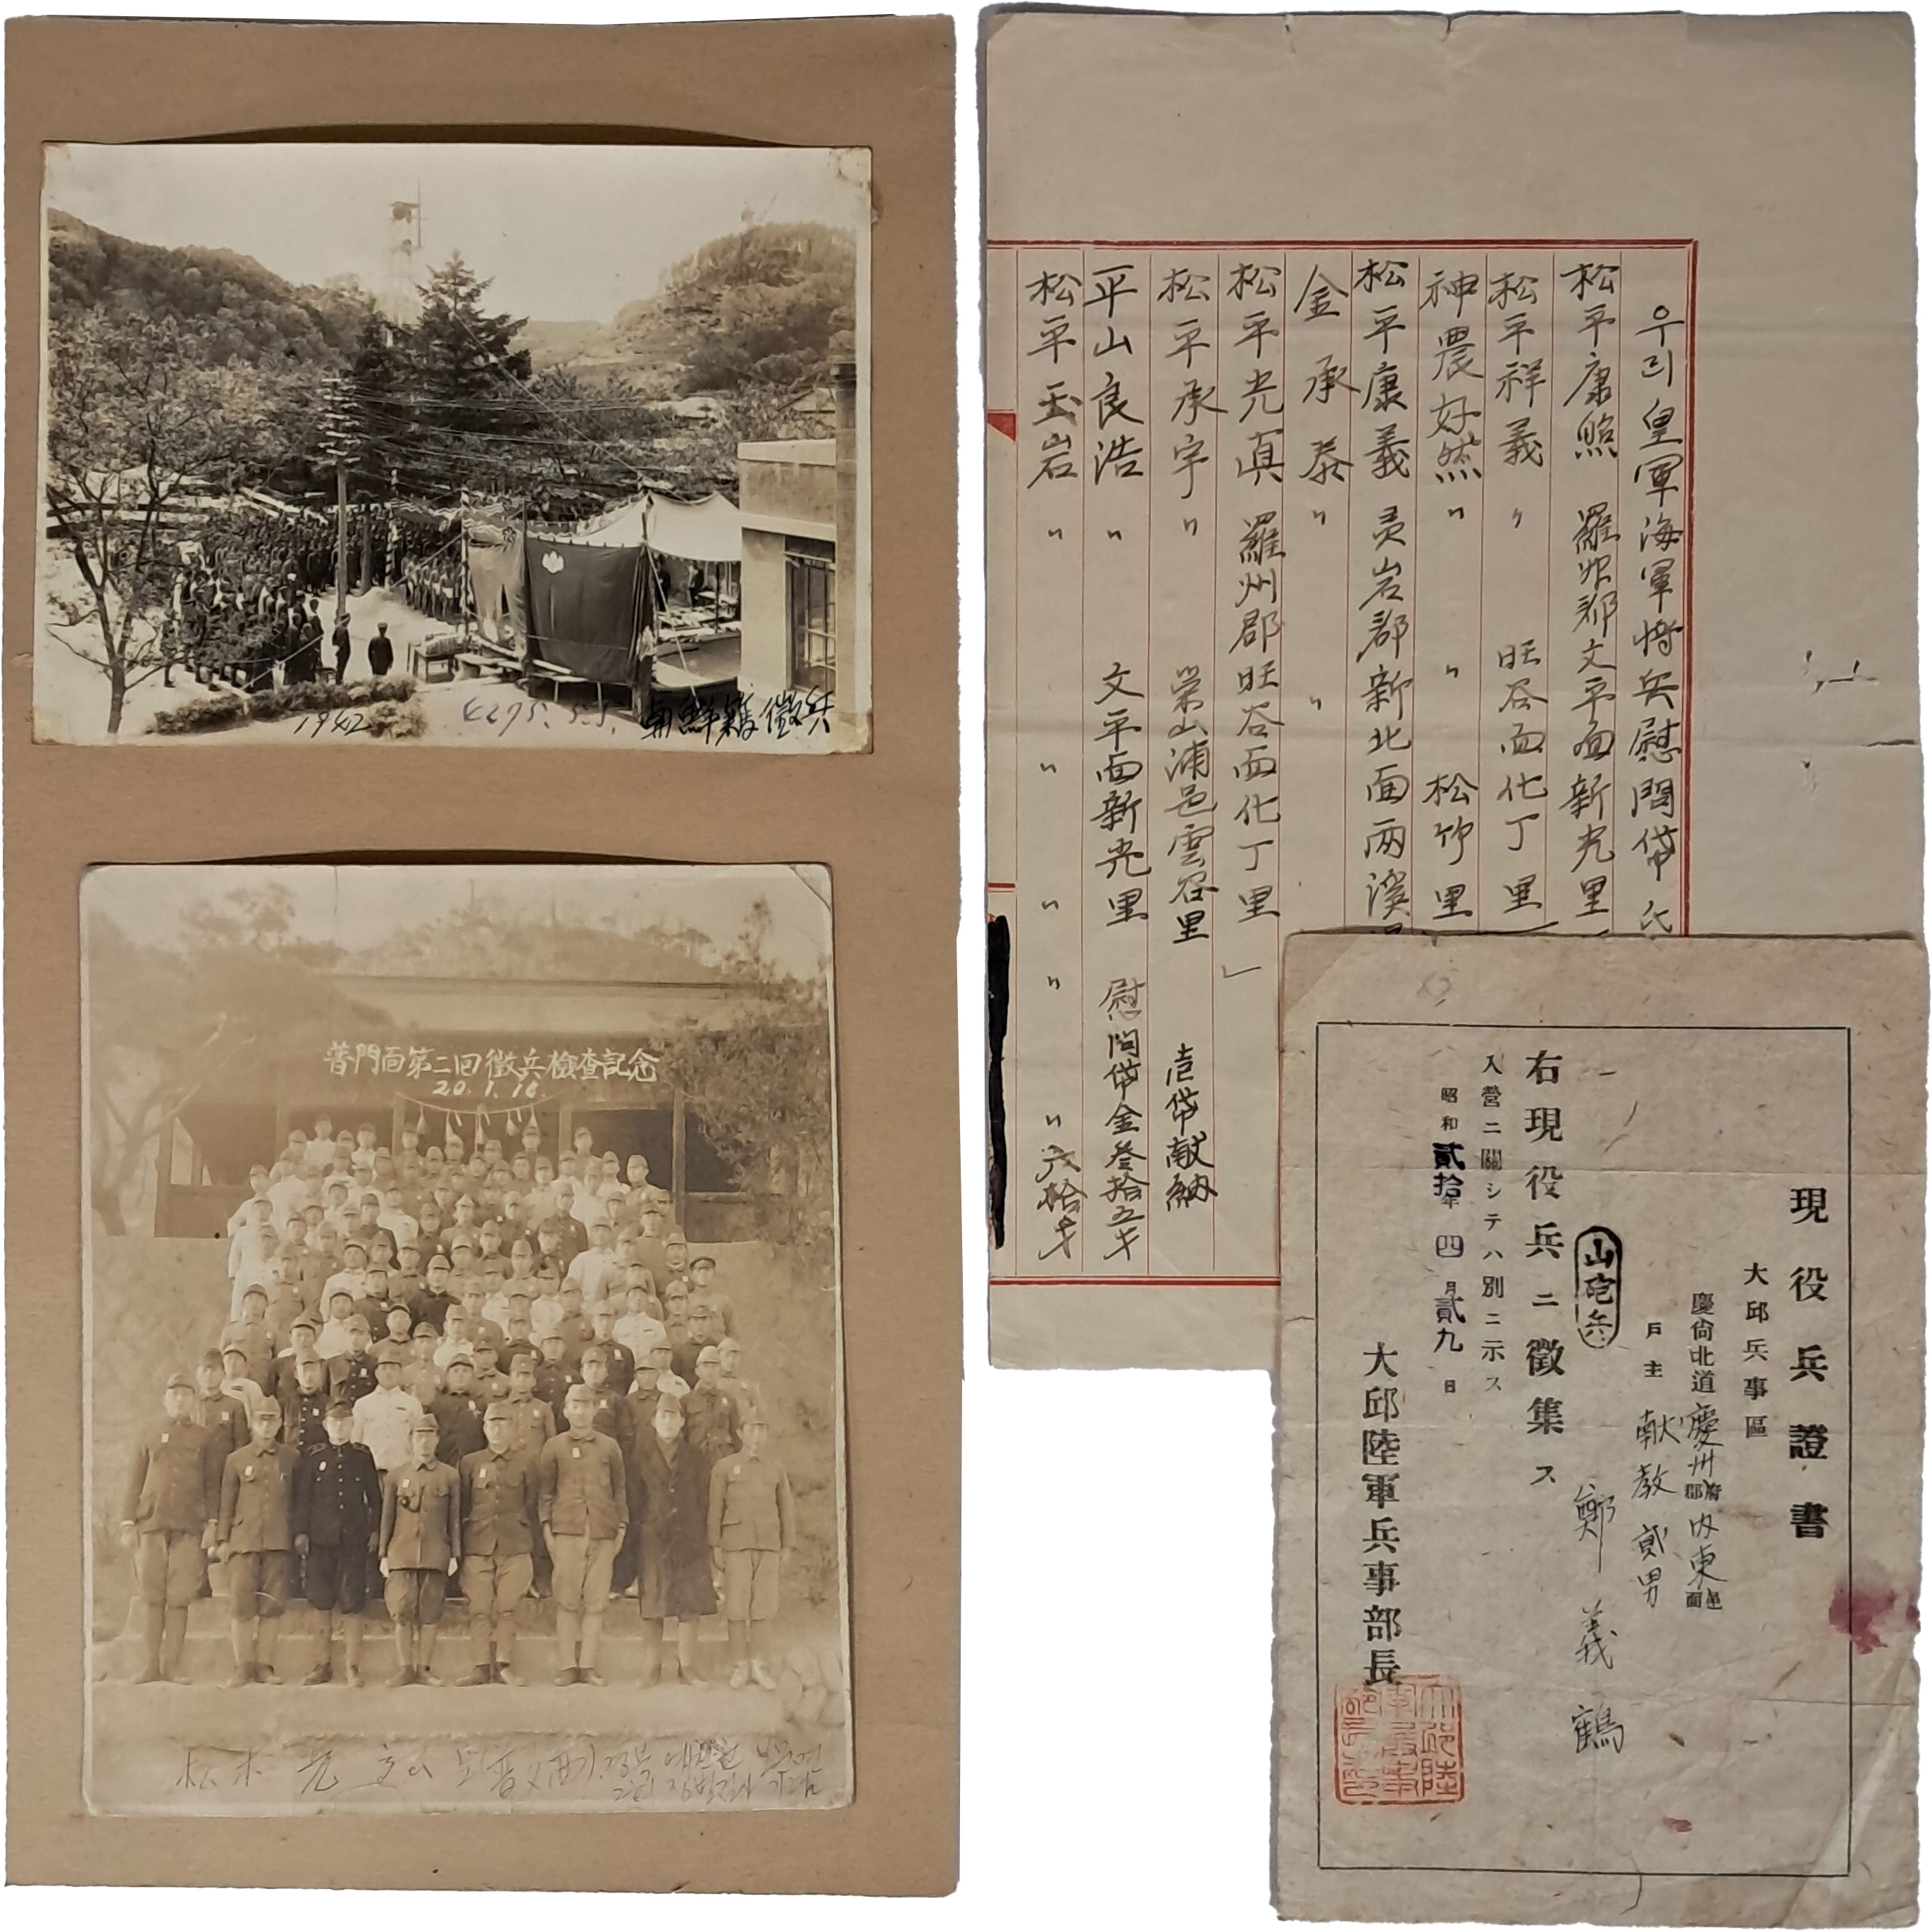 1942 4275.5.1. 朝鮮
徵兵
普門面第二回徵兵檢查記念
20.1.16.
松木
우리皇軍海軍將兵慰問袋
松平康熙 羅州郡文平面新光里
松平祥義 〃 旺谷面化丁里
神農好然 〃 〃 松竹里
松平康義 灵岩郡新北面兩溪
金承泰 〃 〃
松平光眞 羅州郡旺谷面化丁里 」
松平承宇 〃 榮山浦邑雲谷里 壱袋献納
平山良浩 〃 文平面新光里 慰問袋金叄拾五才
松平玉岩 〃 〃 〃 〃 〃 六拾才
現役兵證書
大邱兵事區
慶尙北道慶州府郡内東邑面
戶主 献教 貳男
山砲兵 鄭義鶴
右現役兵ニ徵集ス
入營ニ關シテハ別ニ示ス
昭和貳拾年四月貳九日
大邱陸軍兵事部長